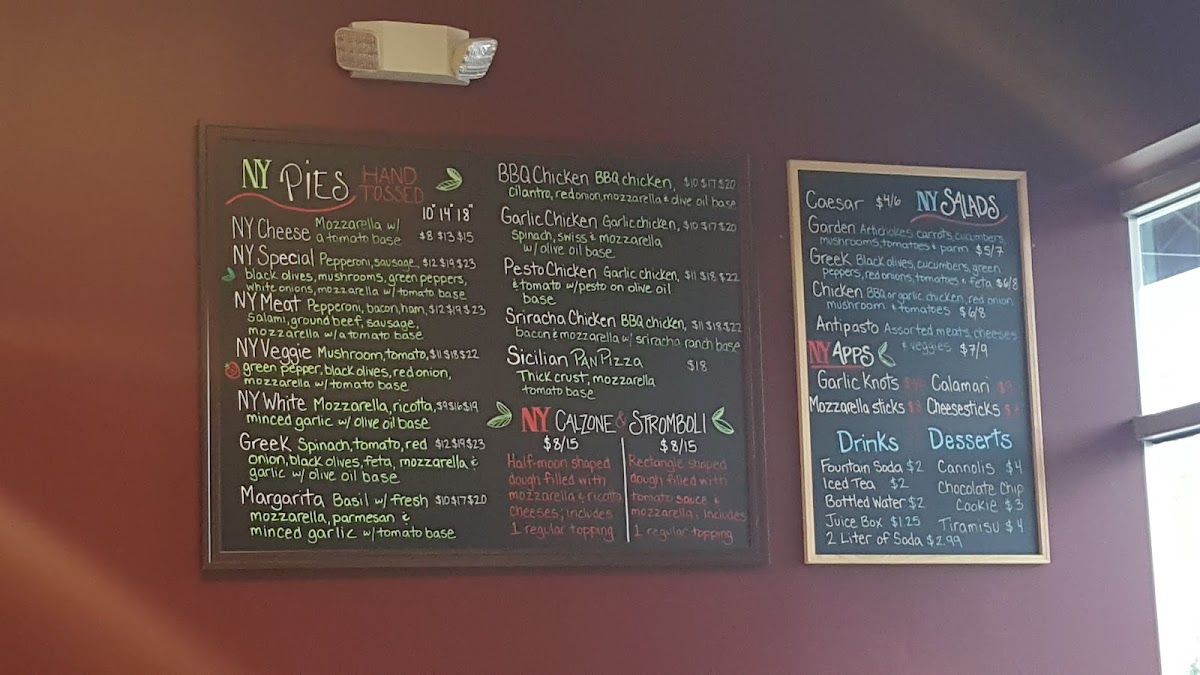 NY PIES HAND TOSSED
10" 14" 18"
NY Cheese Mozzarella w/ a tomato base $8 $13 $15
NY Special Pepperoni, sausage, $12 $19 $23
black olives, mushrooms, green peppers,
white onions, mozzarella w/ tomato base
NY Meat Pepperoni, bacon, ham, $12 $19 $23
Salami, ground beef, sausage,
mozzarella w/ a tomato base
NY Veggie Mushroom, tomato, $11 $18 $22
green pepper, black olives, red onion,
mozzarella w/ tomato base
NY White Mozzarella, ricotta, $9 $16 $19
minced garlic w/ olive oil base
Greek Spinach, tomato, red $12 $19 $23
onion, black olives, feta, mozzarella &
garlic w/ olive oil base
Margarita Basil w/ fresh $10 $17 $20
mozzarella, parmesan &
minced garlic w/ tomato base
BBQ Chicken BBQ chicken, $10 $17 $20
cilantro, red onion, mozzarella & olive oil base
Garlic Chicken Garlic chicken, $10 $17 $20
Spinach, swiss & mozzarella
w/ olive oil base
Pesto Chicken Garlic chicken, $11 $18 $22
& tomato w/ pesto on olive oil
base
Sriracha Chicken BBQ chicken, $11 $18 $22
bacon & mozzarella w/ sriracha ranch base
Sicilian Pan Pizza $18
Thick crust, mozzarella
tomato base
NY CALZONE & STROMBOLI
$8/15 $8/15
Half-moon shaped
dough filled with
mozzarella & ricotta
cheeses; includes
1 regular topping
Rectangle shaped
dough filled with
tomato sauce &
mozzarella; includes
1 regular topping
Caesar $4/6 NY SALADS
Garden Artichokes, carrots, cucumbers,
mushrooms, tomatoes & parm $5/7
Greek Black olives, cucumbers, green
peppers, red onions, tomatoes & feta $6/8
Chicken BBQ or garlic chicken, red onion,
mushroom & tomatoes $6/8
Antipasto Assorted meats, cheeses
& veggies $7/9
NY APPS
Garlic Knots Calamari
Mozzarella sticks Cheesesticks
Drinks Desserts
Fountain Soda $2 Cannolis $4
Iced Tea $2 Chocolate Chip
Bottled Water $2 Cookie $3
Juice Box $1.25 Tiramisu $4
2 Liter of Soda $2.99